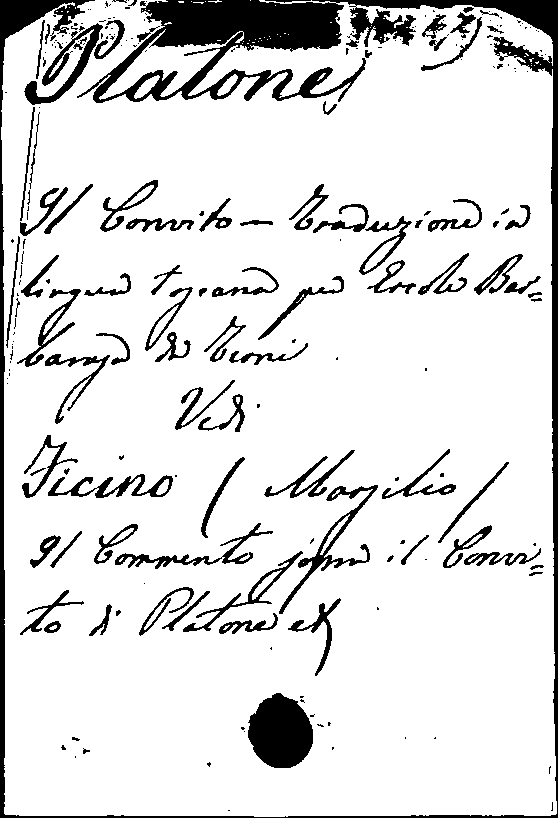 Platone
Il Convito — Traduzione in
lingua toscana per Ercole Bar=
barasa da Terni
Vedi
Ficino ( Marsilio )
Il Commento sopra il Convi=
to di Platone et